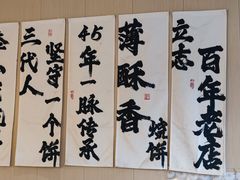 三代人
坚守一个饼
45年一脉传承
薄酥香
烧饼
立志
百年老店